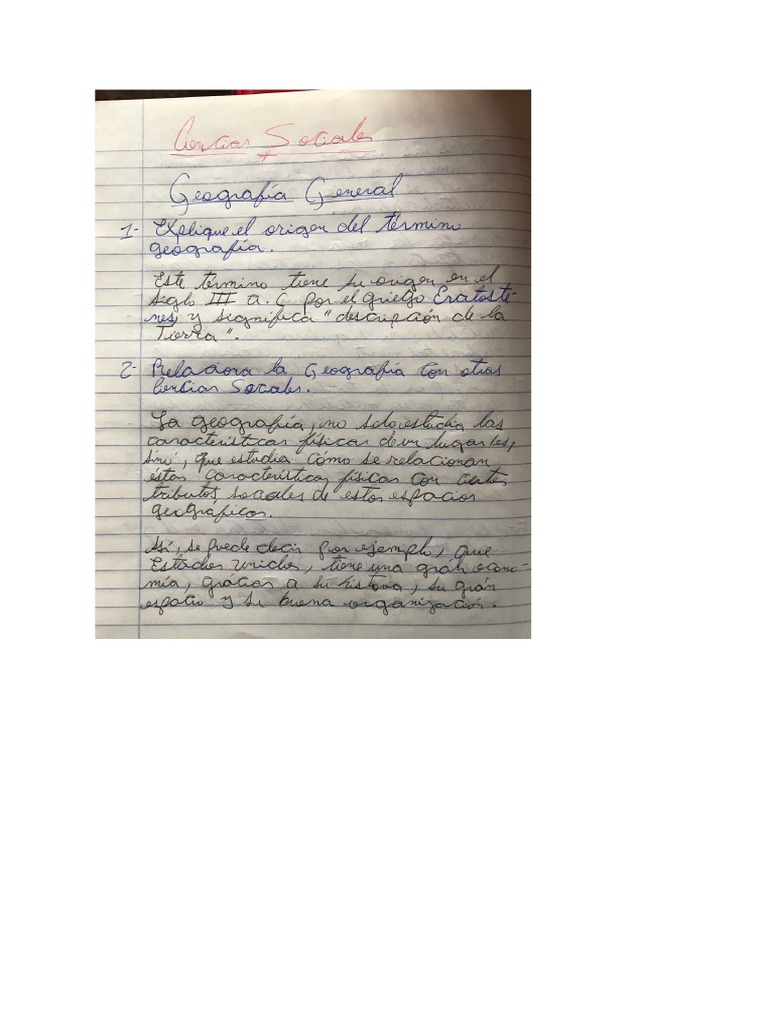 Ciencias Sociales
Geografía General
1- Explique el origen del término
geografía.
Este término tiene su origen en el
siglo III a.C por el griego Eratoste-
nes, y significa "descripción de la
Tierra".
2- Relaciona la Geografía con otras
Ciencias Sociales.
La geografía, no solo estudia las
características físicas de un lugar
sino, que estudia cómo se relacionan
éstas características físicas con
tributos, sociales de estos espacios
geográficos.
Así, se puede decir por ejemplo, que
Estados Unidos, tiene una grán econo-
mía, grácias a su historia, su grán
espacio y su buena organización.